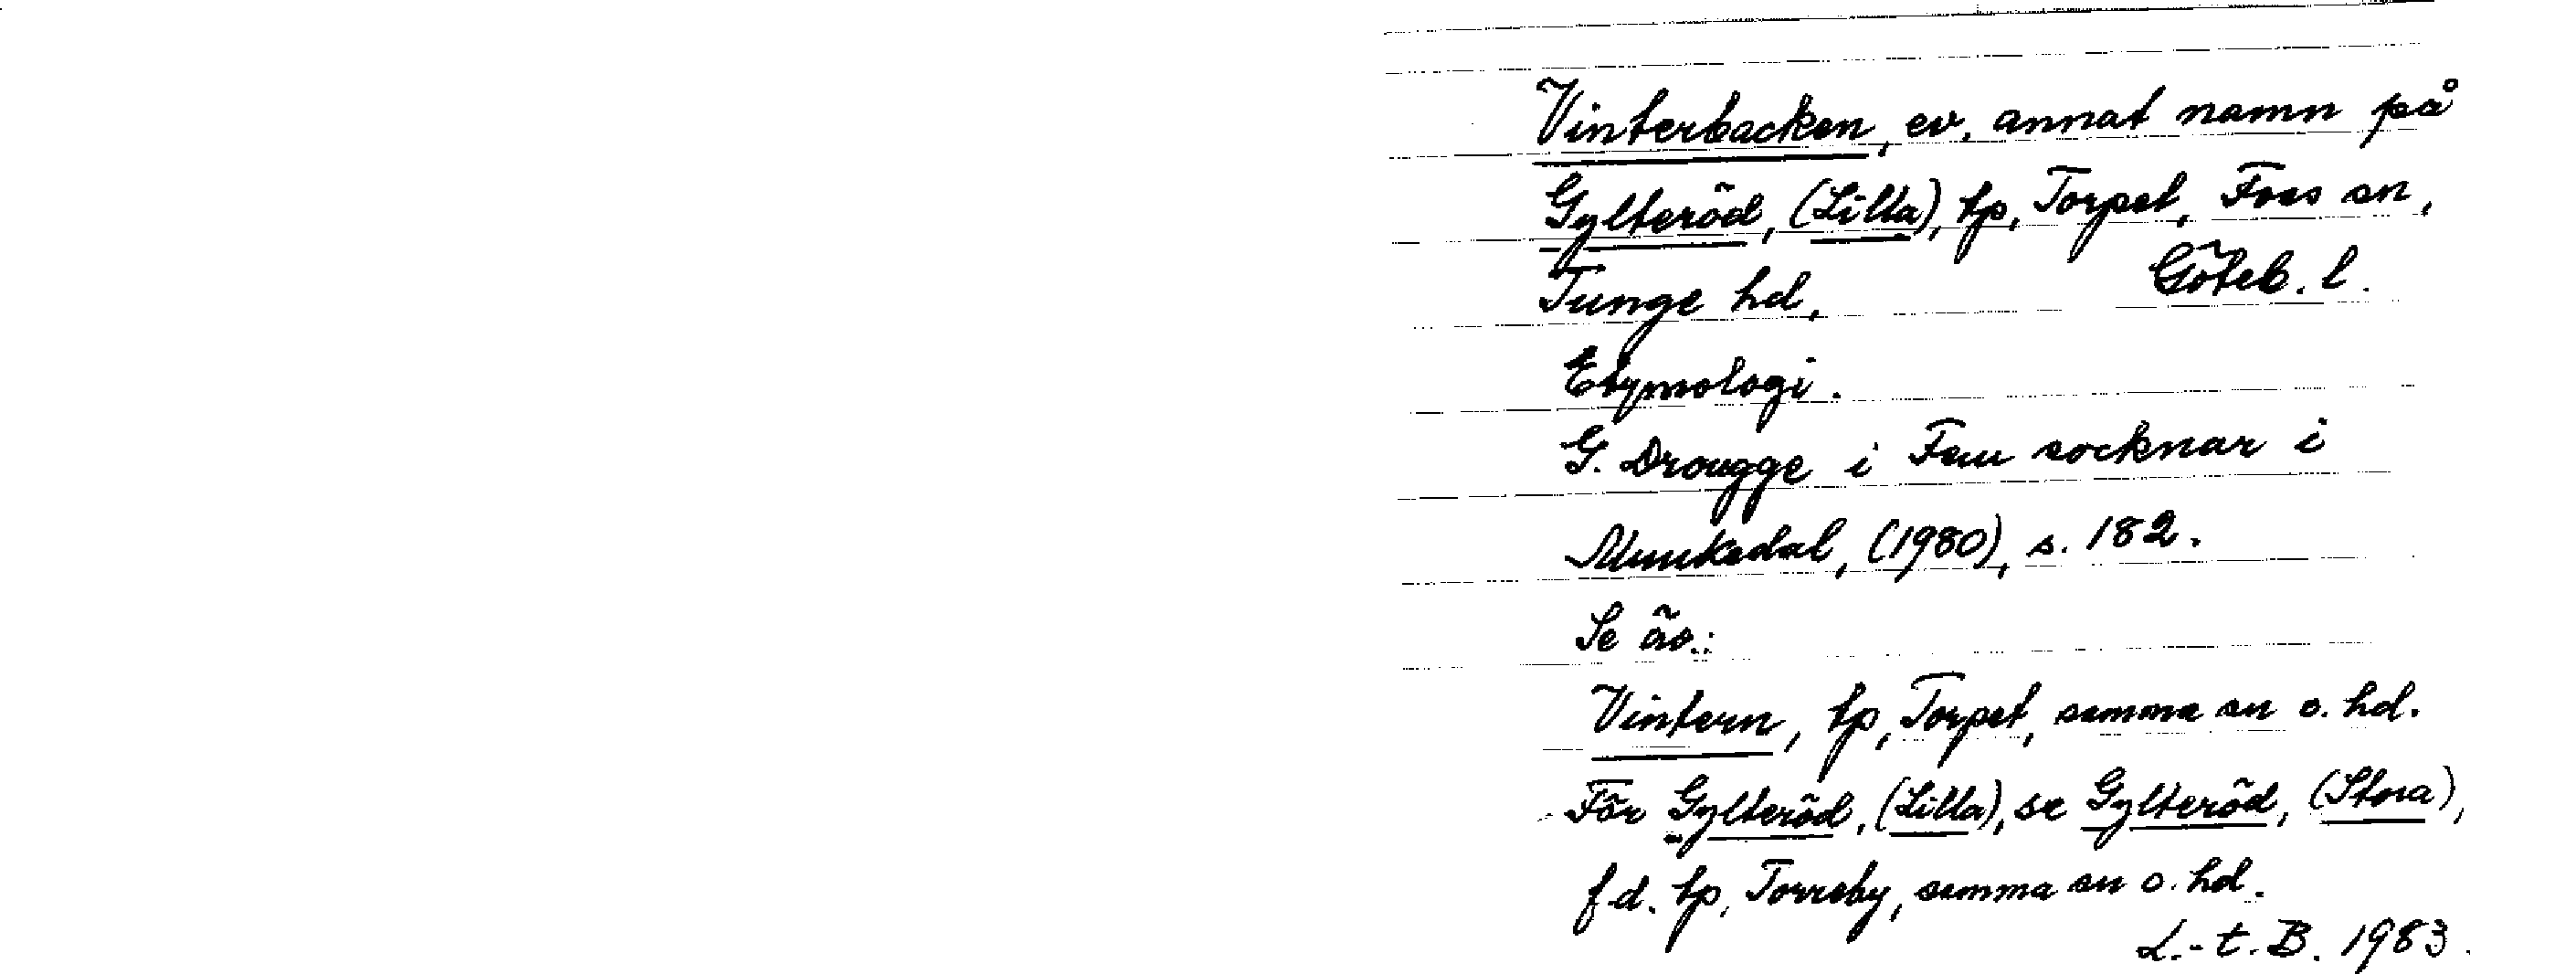 Vinterbacken, ev. annat namn på
Gylteröd, (Lilla), tp, Torpet, Foss sn,
Tunge hd, Göteb. l.
Etymologi.
G. Drougge i Fem socknar i
Munkedal, (1980), s. 182.
Se äv.:
Vintern, tp, Torpet, samma sn o. hd.
För Gylteröd, (Lilla), se Gylteröd, (Stora),
f.d. tp, Torreby, samma sn o. hd.
L.-t. B. 1983.